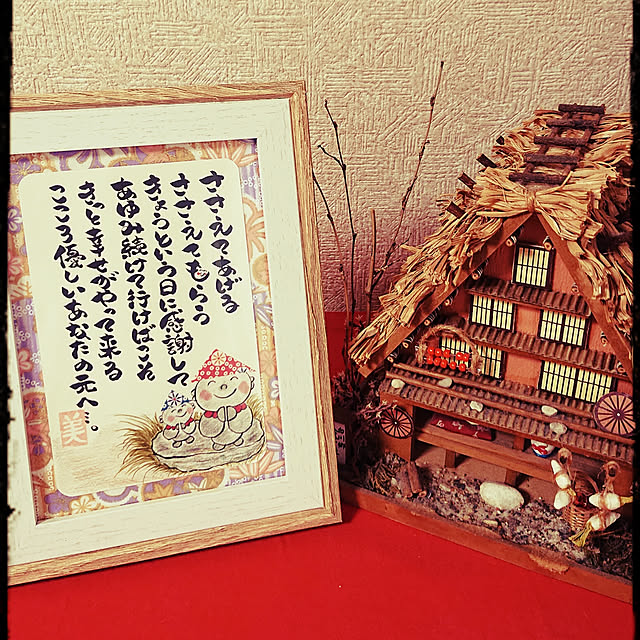 ささえてあげる
ささえてもらう
きょうという日に感謝して
あゆみ続けて行けばこそ
きっと幸せがやって来る
こころ優しいあなたの元へ…。
美